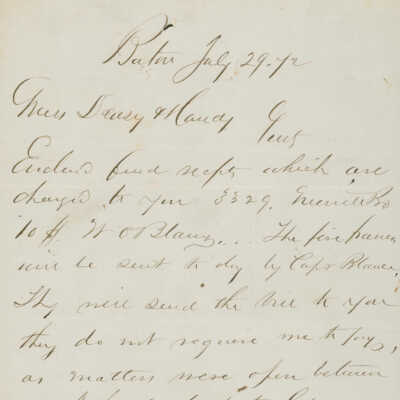 Boston July 29. 72
Mess Deasy & Handy
Gent
Enclosed find recpts which are
charged to you
10 ft. W O Blaney.. The five
will be sent to day by Capt Blaney
They will send the bill to you
they do not require me to pay,
as matters were open between